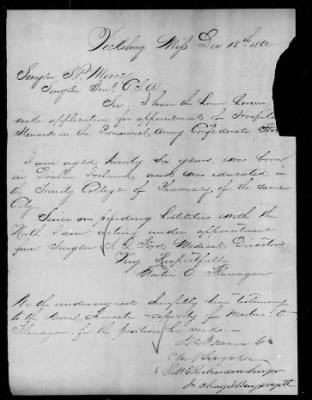 Vicksburg Miss Dec 18th 1862
Surgeon S. P. Moore
Surgeon Genl C.S.A
Sir, I have the honor herein
make application for appointment of Hospital
Steward in the Provisional Army Confederate
I am aged twenty six years, was born
in Dublin Ireland and was educated in
the Trinity College of Pharmacy of the same
City.
Since my hostilities with the
North I am acting under appointment
from Surgeon Medical Director
Very Respectfully
O Flanagan
We the undersigned cheerfully bear testimony
to the moral character & capacity for O
Flanagan for the position he seeks
Richardson Surgn